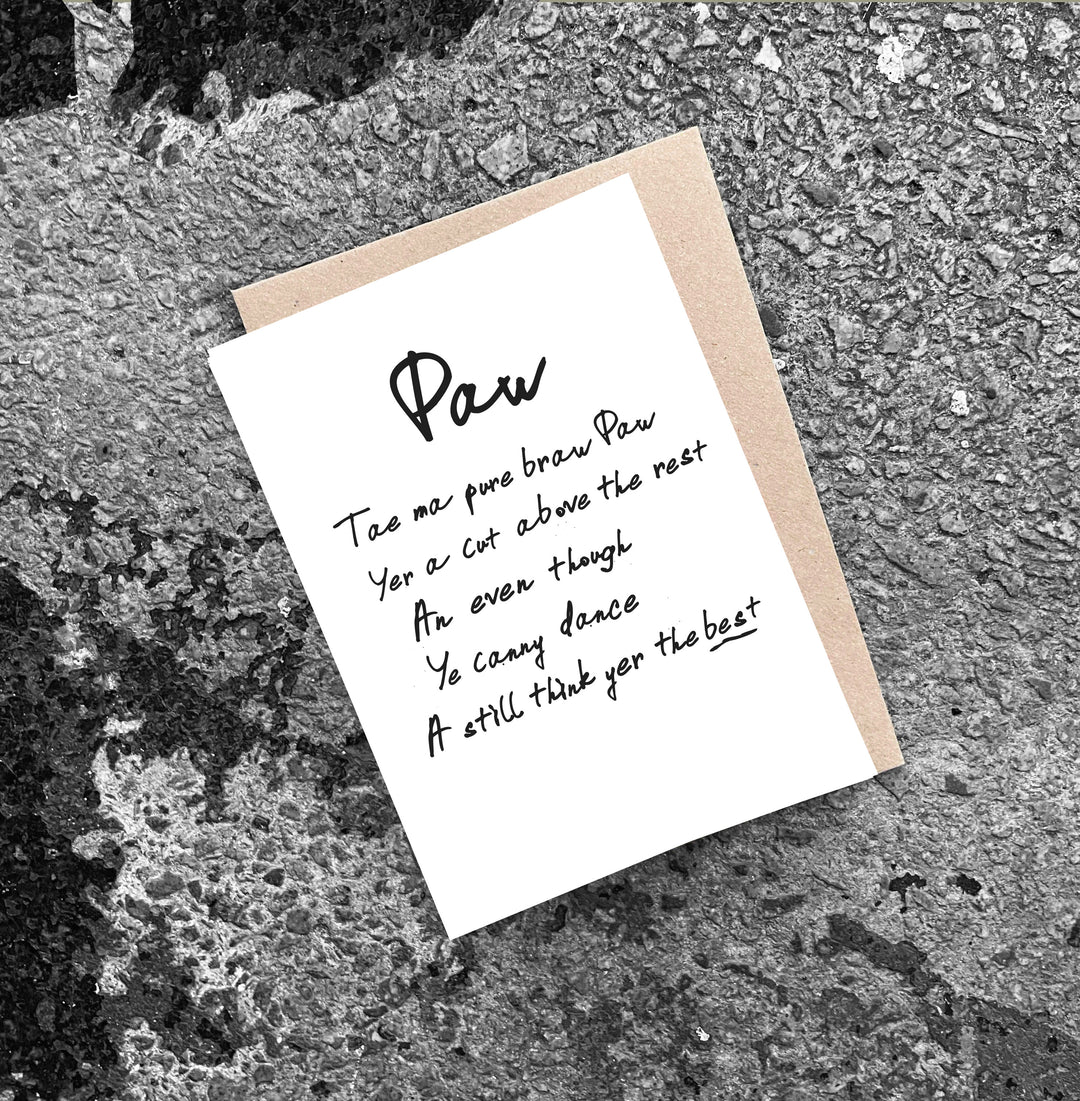 Paw
Tae ma pure braw Paw
Yer a cut above the rest
An even though
Ye canny dance
A still think yer the best